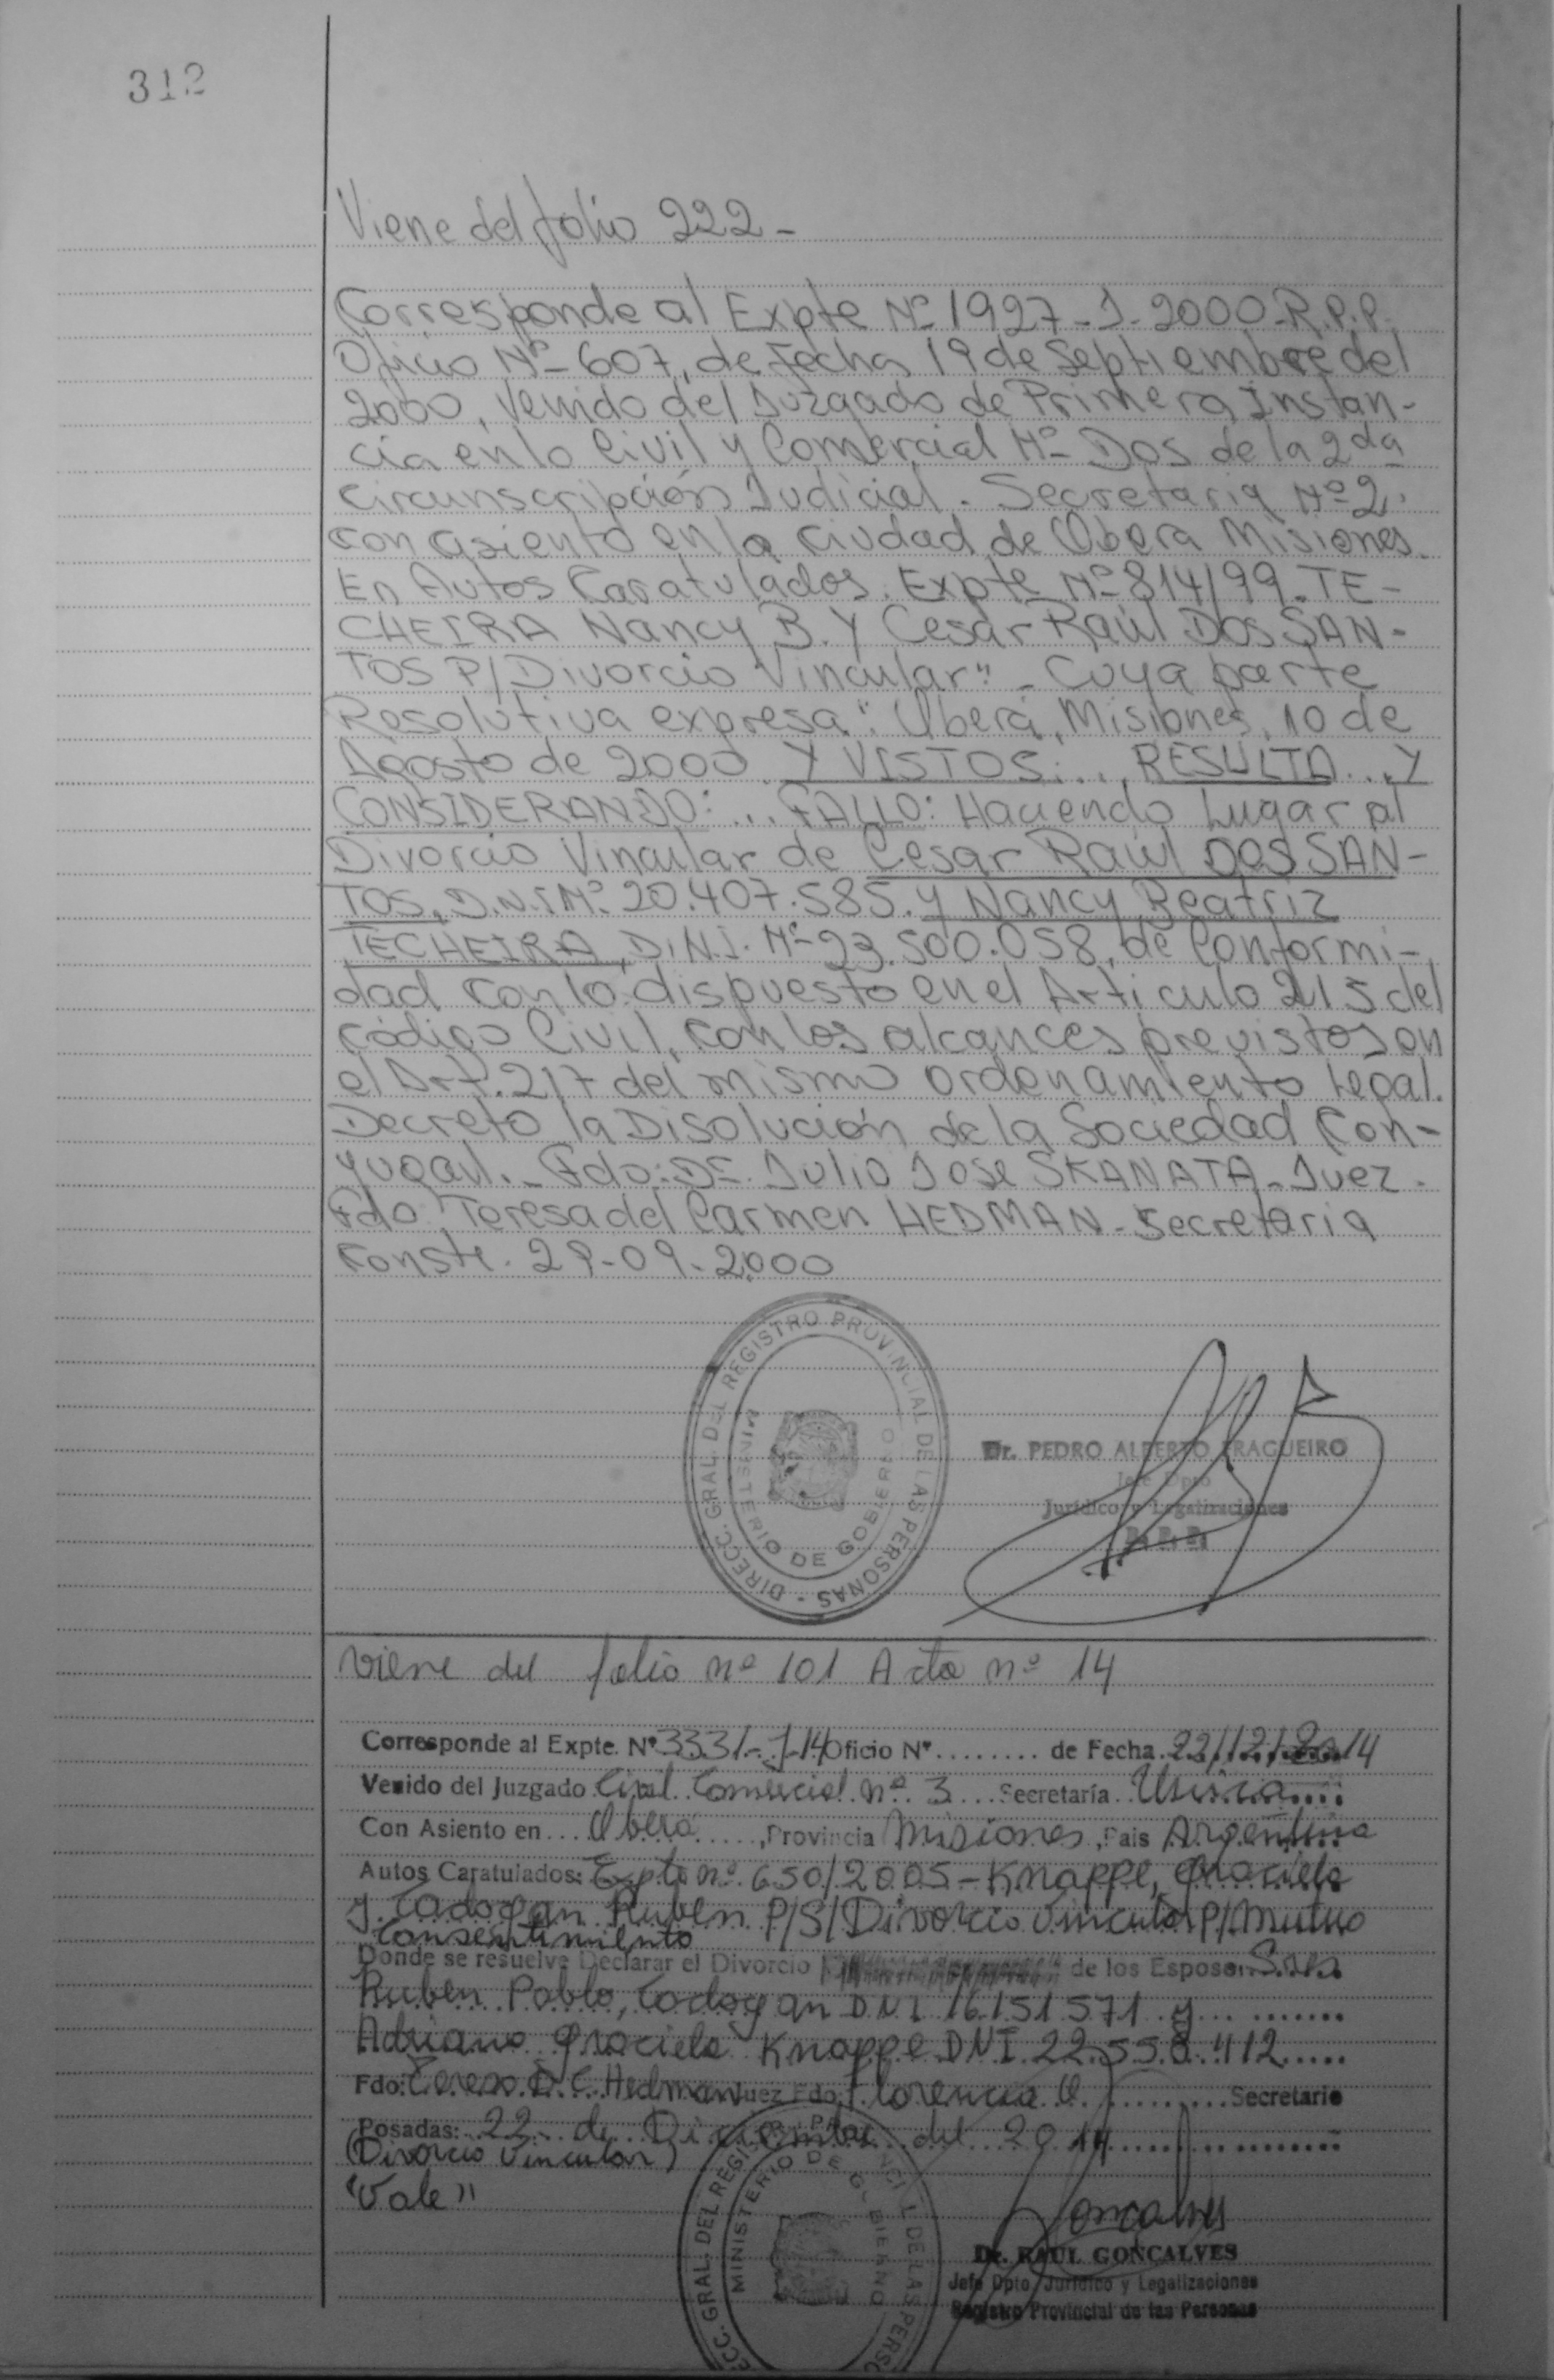 312
Viene del folio 222-
Corresponde al Expte Nº 1927-J-2000-R.P.P.
Oficio Nº-607, de Fecha 19 de Septiembre del
2000, Venido del Juzgado de Primera Instan-
cia en lo Civil y Comercial Nº- Dos de la 2da
Circunscripción Judicial. Secretaria Nº2,
con asiento en la ciudad de Oberá Misiones.
En Autos Caratulados. Expte Nº-814/99. TE-
CHEIRA Nancy B. Y Cesar Raúl DOS SAN-
TOS P/Divorcio Vincular". - Cuya parte
Resolutiva expresa: "Oberá, Misiones, 10 de
Agosto de 2000 Y VISTOS:... RESULTA... Y
CONSIDERANDO:... FALLO: Haciendo Lugar al
Divorcio Vincular de Cesar Raúl DOS SAN-
TOS, D.N.I Nº. 20.407.585. y Nancy Beatriz
TECHEIRA, D.N.I. Nº-23.500.058, de Conformi-
dad con lo dispuesto en el Artículo 215 del
Código Civil, con los alcances previstos en
el Art. 217 del mismo ordenamiento legal.
Decreto la Disolución de la Sociedad Con-
yugal. - Fdo: Dr. Julio Jose SKANATA - Juez.
Fdo. Teresa del Carmen HEDMAN - Secretaria
Conste. 29-09-2000
DIRECC. GRAL. DEL REGISTRO PROVINCIAL DE LAS PERSONAS -
MINISTERIO DE GOBIERNO
Dr. PEDRO ALBERTO FRAGUEIRO
Jefe Dpto
Jurídico y Legalizaciones
R. P. P.
Viene del folio nº 101 Acta nº 14
Corresponde al Expte. Nº 3331-J-14 Oficio Nº......... de Fecha 22/12/2014
Venido del Juzgado Civil Comercial nº 3 Secretaría Unica
Con Asiento en Oberá, Provincia Misiones, Pais Argentina
Autos Caratulados: Expte nº 650/2005 - Knappe, Graciela
y Cadogan Ruben P/S/Divorcio Vincular P/Mutuo
Consentimiento
Donde se resuelve Declarar el Divorcio de los Esposos Sres
Ruben Pablo, Cadogan DNI 16.151.571 y
Adriana Graciela Knappe DNI 22.558.412
Fdo: Teresa D. C. Hedman Juez Fdo. Florencia Secretario
Posadas: 22 de Diciembre del 2014
(Divorcio Vincular)
"Vale"
DIRECC. GRAL. DEL REGISTRO PROVINCIAL DE LAS PERSO
MINISTERIO DE GOBIERNO
Goncalves
Dr. RAUL GONCALVES
Jefe Dpto. Jurídico y Legalizaciones
Registro Provincial de las Personas